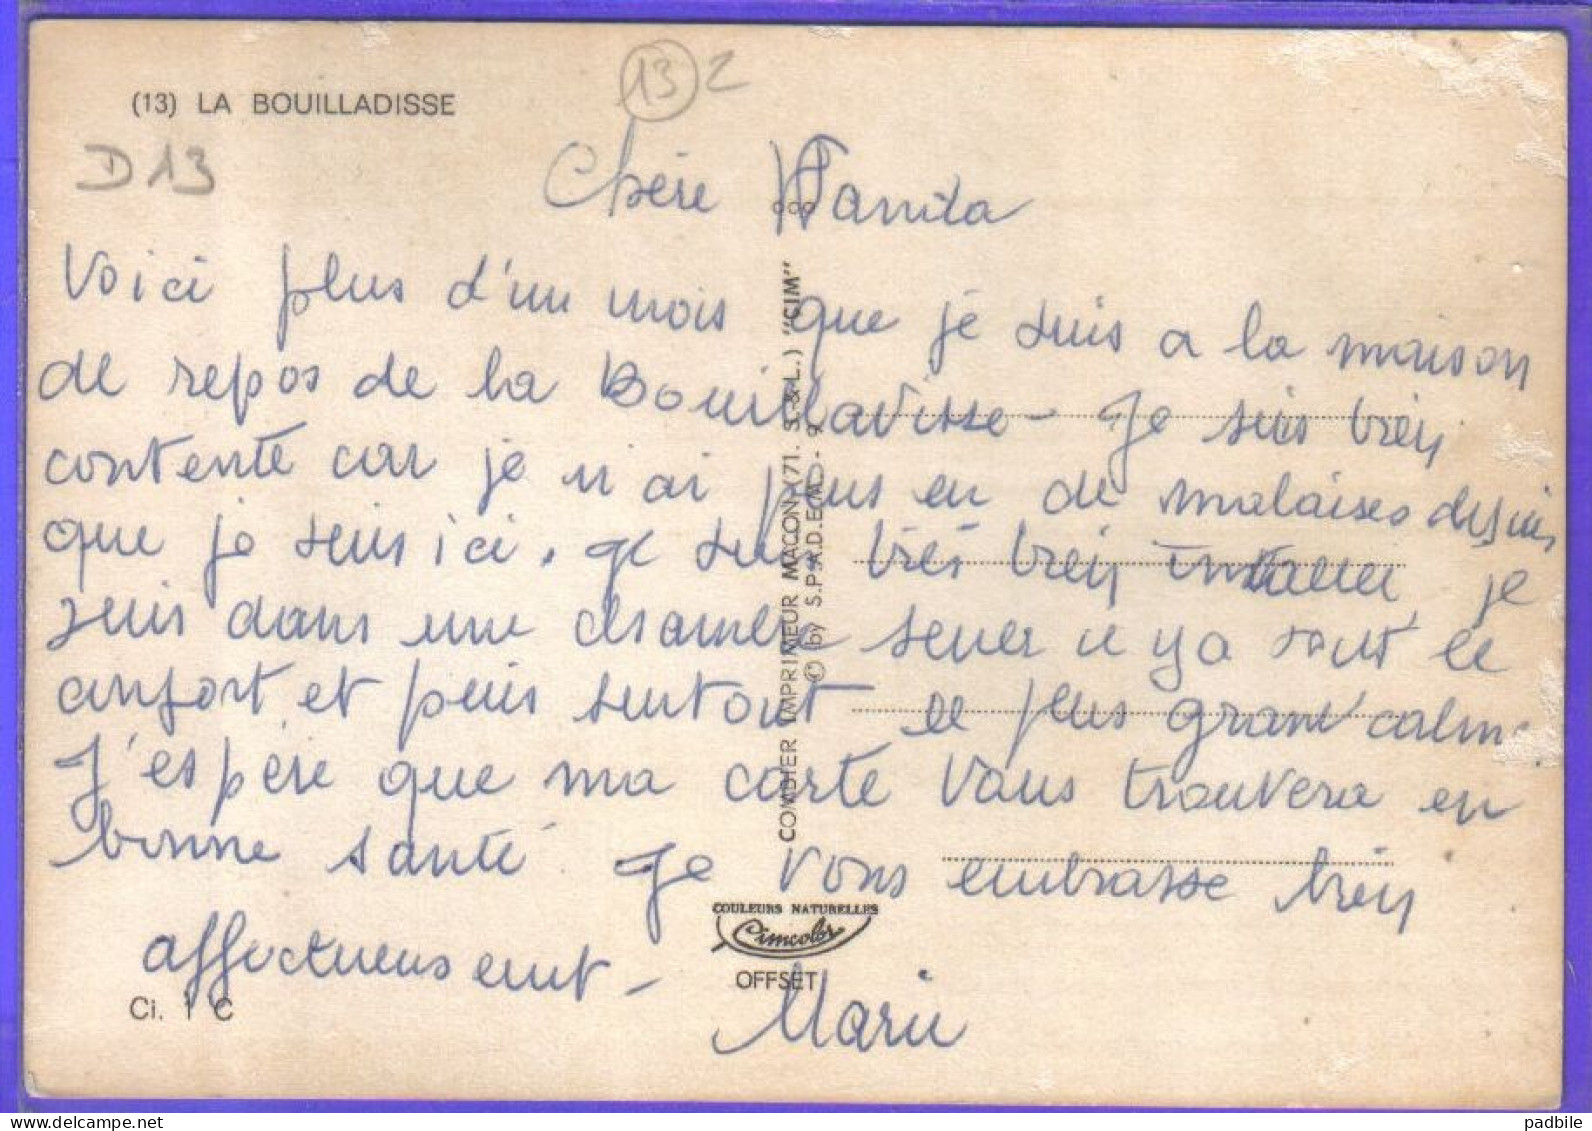 13 2
(13) LA BOUILLADISSE
D13
Chère Wanda
Voici plus d'un mois que je suis a la maison
de repos de la Bouillavisse - Je suis bien
contente car je n'ai plus eu de malaises depuis
que je suis ici. Je suis très bien installer, je
suis dans une chambre seule il y a tout le
confort et puis surtout le plus grand calme
J'espère que ma carte vous trouvera en
bonne santé Je vous embrasse bien
affectueusement -
Marie
COMBIER IMPRIMEUR MACON (71. S.&L.) "CIM"
© by S.P.A.D.E.M. - 9
COULEURS NATURELLES
Cimcolor
OFFSET
Ci. 1 C
padbile